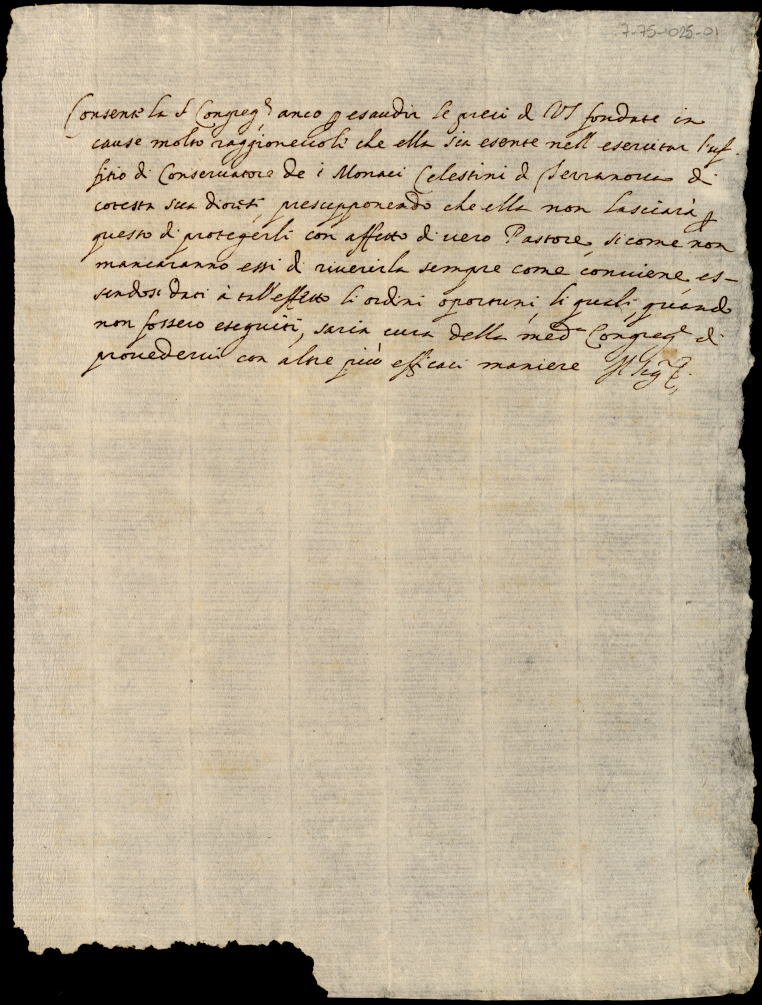 7-75-025-01
Consente la S Congreg.e anco p esaudir le preci di VS fondate in
cause molto raggioneuoli che ella sia esente nell' esercitar l'uf-
fitio di Conservatore de i Monaci Celestini di Terranova di
cotesta sua diocesi, presupponendo che ella non lasciarà p
questo di protegerli con affetto di uero Pastore, si come non
mancaranno essi di riuerirla sempre come conuiene, es-
sendosi dati à tall'effetto li ordini oportuni, li quali, quando
non fossero eseguiti, saria cura della med.a Congreg.e di
prouederui con altre più efficaci maniere